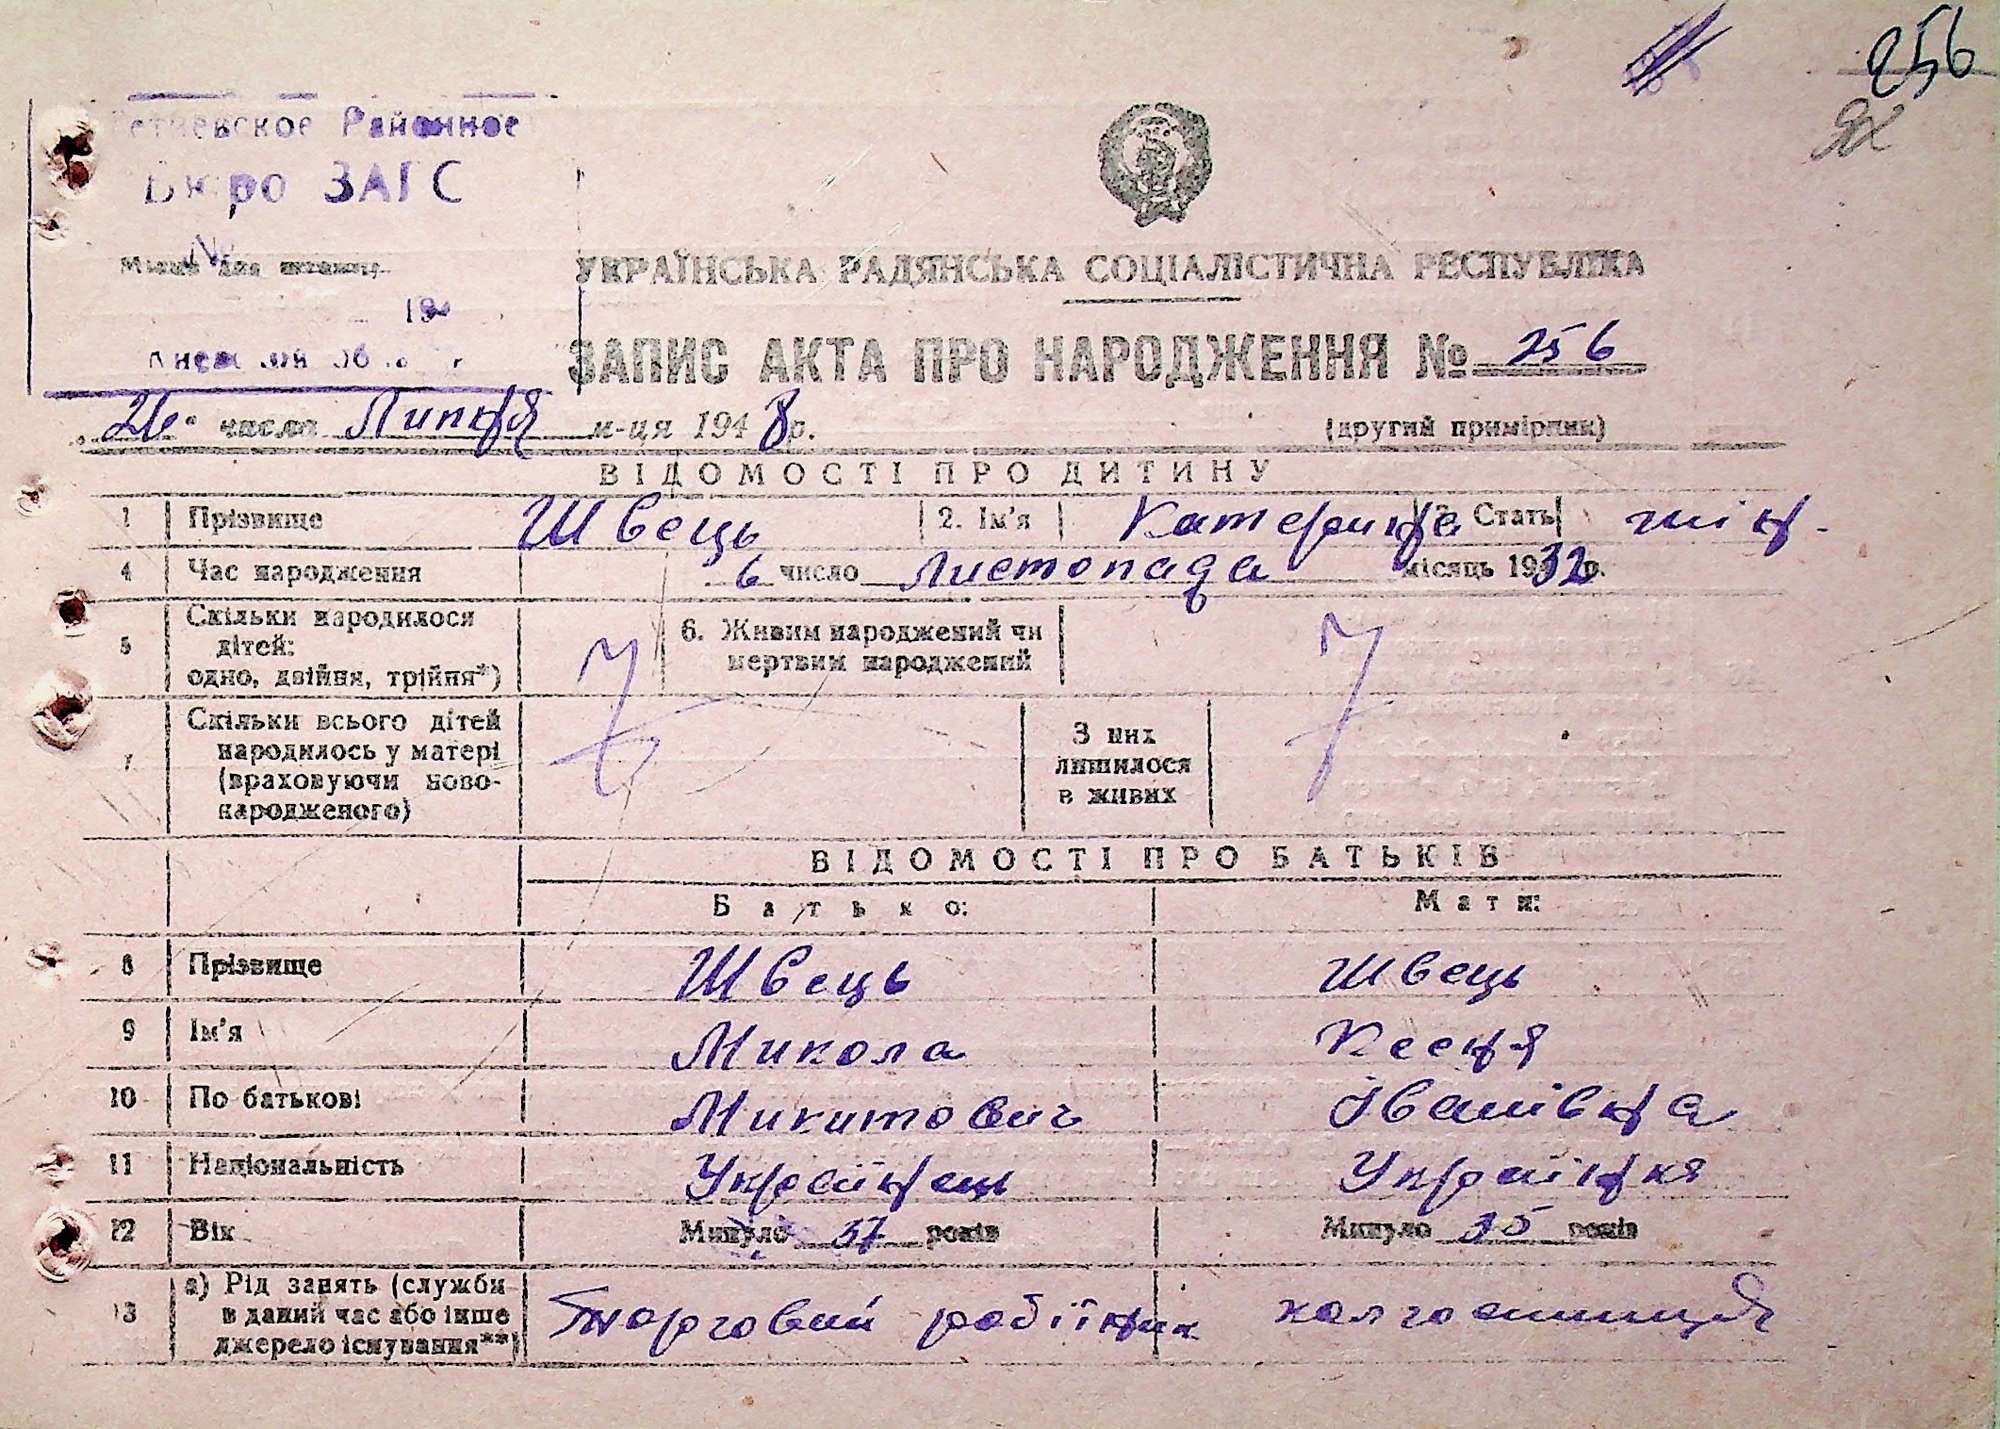 256
Районное
Бюро ЗАГС
№
Місце для штампу
194
УКРАЇНСЬКА РАДЯНСЬКА СОЦІАЛІСТИЧНА РЕСПУБЛІКА
ЗАПИС АКТА ПРО НАРОДЖЕННЯ № 256
26 числа Липня м-ця 1948 р.
(другий примірник)
ВІДОМОСТІ ПРО ДИТИНУ
1 Прізвище Швець 2. Ім'я Катерина 3. Стать жін.
4 Час народження 6 число Листопада місяць 1932 р.
5 Скільки народилося дітей: одно, двійня, трійня*)
6. Живим народжений чи мертвим народжений
7 Скільки всього дітей народилось у матері (враховуючи ново-народженого)
З них лишилося в живих
ВІДОМОСТІ ПРО БАТЬКІВ
Батько: Мати:
8 Прізвище Швець Швець
9 Ім'я Микола Ксеня
10 По батькові Микитович Іванівна
11 Національність Українець Українка
12 Вік Минуло 37 років Минуло 35 років
13 а) Рід занять (служби в даний час або інше джерело існування**) Торговий робітник колгоспниця